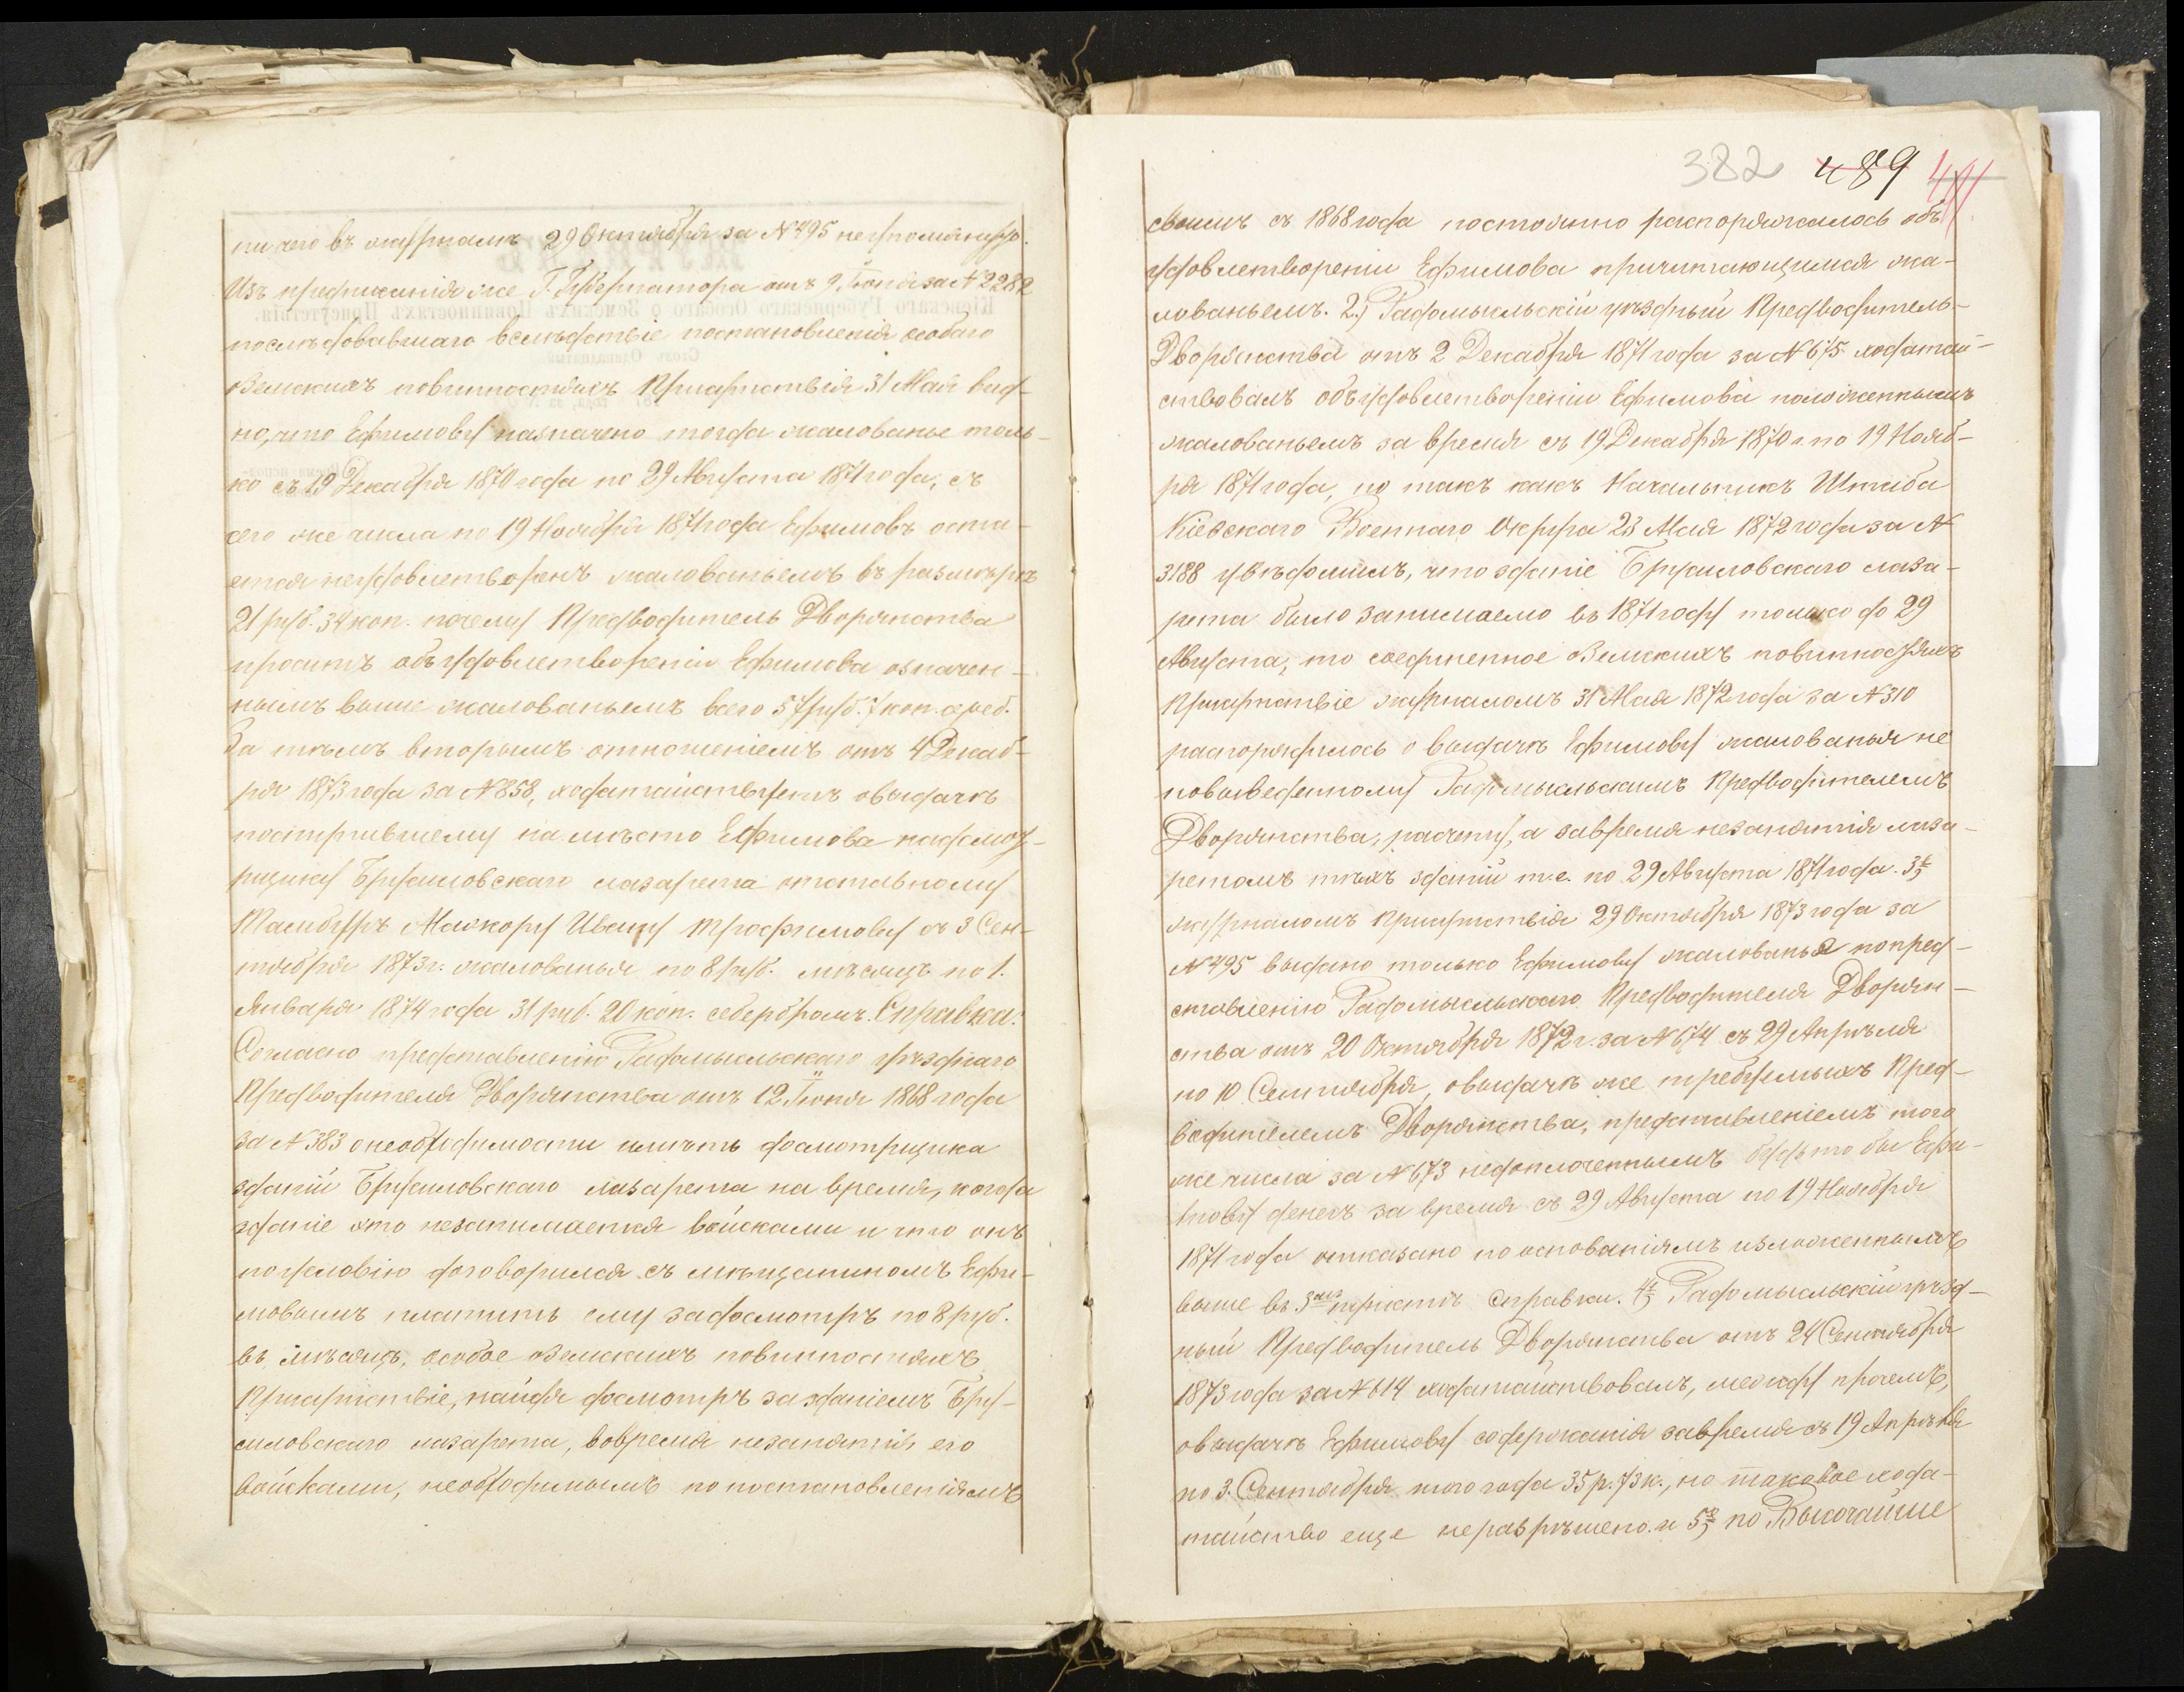 ничего въ журналѣ 29 Октября за № 495 неупомянуто.
Изъ предписанія же Г. Губернатора отъ 9 Іюня за № 2282
послѣдовавшаго вслѣдствіе постановленія особаго
оЗемскихъ повинностяхъ Присутствія 31 Мая вид-
но, что Ефимову назначено тогда жалованье толь-
ко съ 19 Декабря 1870 года по 29 Августа 1871 года, съ
сего же числа по 19 Ноября 1871 года Ефимовъ оста-
ется неудовлетворенъ жалованьемъ въ размѣрѣ
21 руб. 34 коп. почему Предводитель Дворянства
проситъ объ удовлетвореніи Ефимова означен-
нымъ выше жалованьемъ всего 57 руб. 7 коп. сереб.
За тѣмъ вторымъ отношеніемъ отъ 4 Декаб-
ря 1873 года за № 858, ходатайствуетъ овыдачѣ
поступившему на мѣсто Ефимова надсмот-
рщику Брусиловскаго лазарета отставному
Тамбуръ Мажору Ивану Трофимову съ 3 Сен-
тября 1873 г. жалованья по 8 руб. мѣсяцъ по 1.
Января 1874 года 31 руб. 20 коп. серебромъ. Справка:
Согласно представленію Радомысльскаго уѣзднаго
Предводителя Дворянства отъ 12 Іюня 1868 года
за № 383 онеобходимости имѣть досмотрщика
зданій Брусиловскаго лазарета на время, когда
зданіе это незанимается войсками и что онъ
поусловію договорился съ мѣщаниномъ Ефи-
мовымъ платить ему задосмотръ по 8 руб.
въ мѣсяцъ, особое оЗемскихъ повинностяхъ
Присутствіе, найдя досмотръ за зданіемъ Бру-
силовскаго лазарета, вовремя незанятія его
войсками, необходимымъ по постановленіямъ
382 489
своимъ съ 1868 года постоянно распоряжалось объ
удовлетвореніи Ефимова причитающимся жа-
лованьемъ. 2., Радомысльскій уѣздный Предводитель
Дворянства отъ 2 Декабря 1871 года за № 675 ходатай-
ствовалъ объ удовлетвореніи Ефимова положеннымъ
жалованьемъ за время съ 19 Декабря 1870 г. по 19 Нояб-
ря 1871 года, но такъ какъ Начальникъ Штаба
Кіевскаго Военнаго Округа 23 Мая 1872 года за №
3188 увѣдомилъ, что зданіе Брусиловскаго лаза-
рета было занимаемо въ 1871 году только до 29
Августа, то соединенное оЗемскихъ повинностяхъ
Присутствіе журналомъ 31 Мая 1872 года за № 310
распорядилось о выдачѣ Ефимову жалованья не
повыведенному Радомысльскимъ Предводителемъ
Дворянства, расчету, а завремя незанятія лаза-
ретомъ тѣхъ зданій т.е. по 29 Августа 1871 года. 3,
журналомъ Присутствія 29 Октября 1873 года за
№ 495 выдано только Ефимову жалованье попред-
ставленію Радомысльскаго Предводителя Дворян-
ства отъ 20 Октября 1872 г. за № 674 съ 29 Апрѣля
по 10 Сентября, овыдачѣ же требуемыхъ Пред-
водителемъ Дворянства, представленіемъ того
же числа за № 673 недоплоченнымъ будьто бы Ефи-
мову денегъ за время съ 29 Августа по 19 Ноября
1871 года отказано по основаніямъ изложеннымъ
выше въ 3 пунктѣ справки. 4, Радомысльскій уѣзд-
ный Предводитель Дворянства отъ 24 Сентября
1873 года за № 614 ходатайствовалъ, между прочемъ,
овыдачѣ Ефимову содержанія завремя съ 19 Апрѣля
по 3. Сентября того года 35 р. 73 к., но таковое хода-
тайство еще неразрѣшено. и 5, по Высочайше